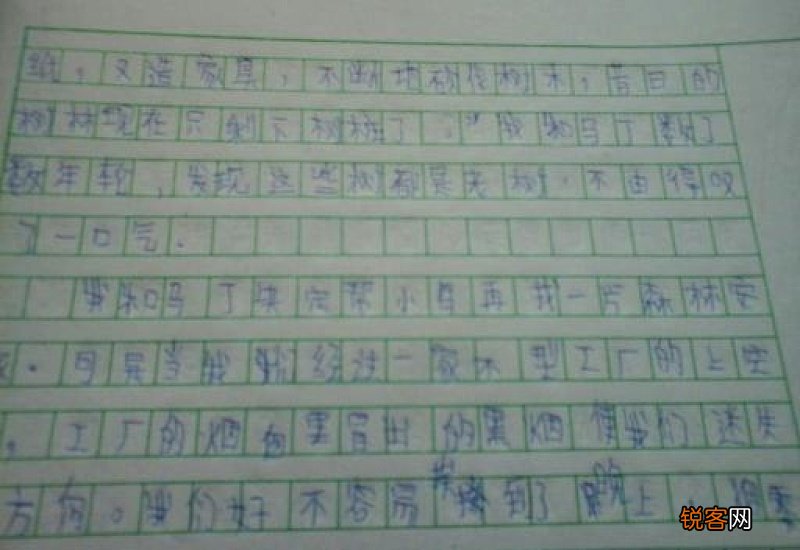 纸，又造家具，不断地砍伐树木，昔日的
树林现在只剩下树桩了。”我和马丁数了
数年轮，发现这些树都是老树。不由得叹
了一口气。
我和马丁决定帮小鸟再找一片森林安
家。可是当我们经过一家大型工厂的上空
。工厂的烟囱里冒出的黑烟使我们迷失
方向。我们好不容易到了晚上，
锐客网